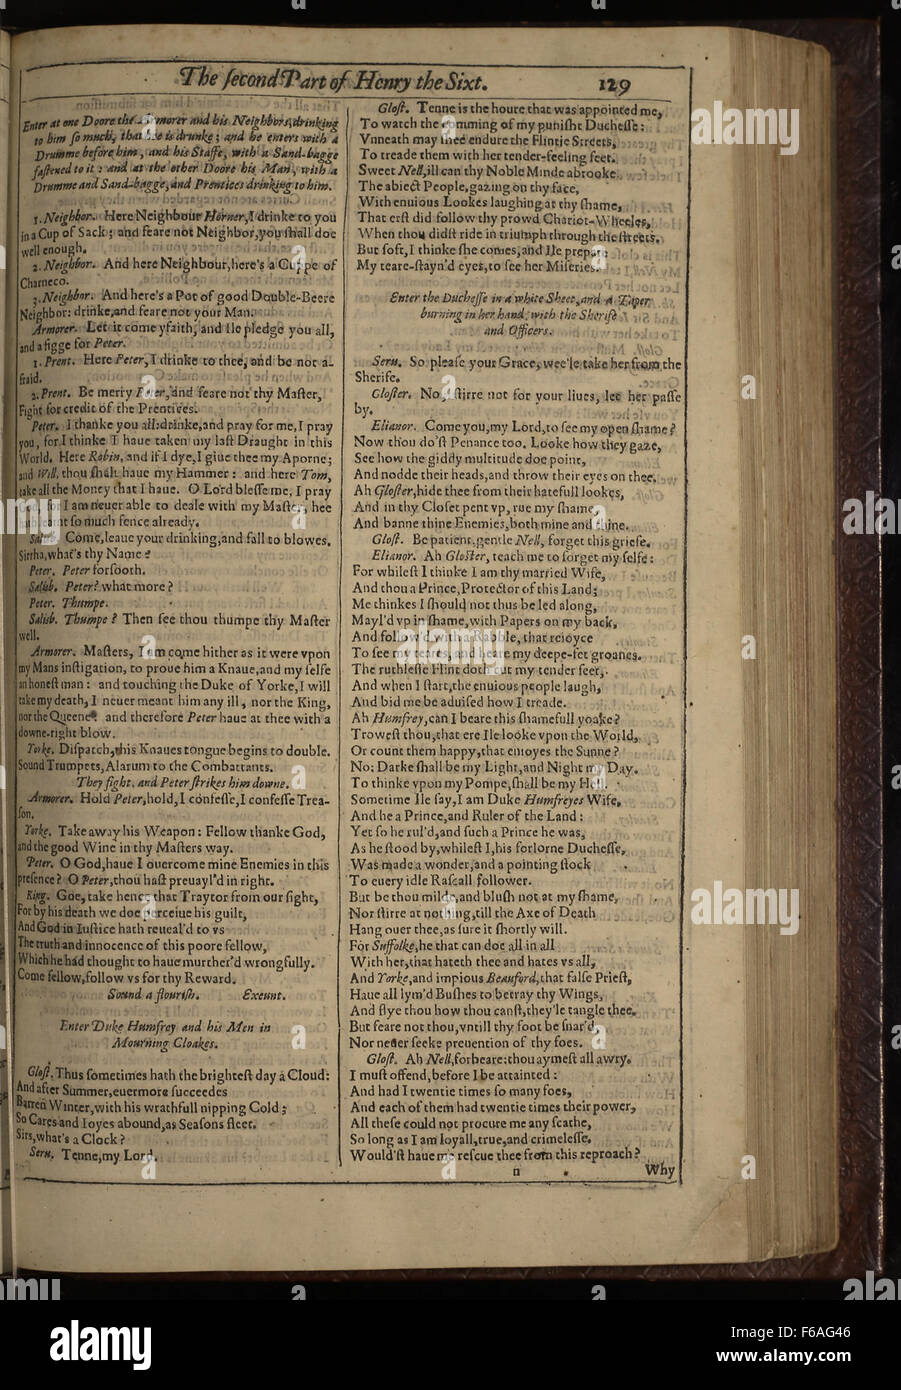 The ſecond Part of Henry the Sixt.
129
Enter at one Doore the Armorer and his Neighbors, drinking
to him ſo much, that hee is drunke; and he enters with a
Drumme before him, and his Staffe, with a Sand-bagge
faſtened to it: and at the other Doore his Man, with a
Drumme and Sand-bagge, and Prentices drinking to him.
1. Neighbor. Here Neighbour Horner, I drinke to you
in a Cup of Sack; and feare not Neighbor, you ſhall doe
well enough.
2. Neighbor. And here Neighbour, here's a Cuppe of
Charneco.
3. Neighbor. And here's a Pot of good Double-Beere
Neighbor: drinke, and feare not your Man.
Armorer. Let it come yfaith, and Ile pledge you all,
and a figge for Peter.
1. Prent. Here Peter, I drinke to thee, and be not a-
fraid.
2. Prent. Be merry Peter, and feare not thy Maſter,
Fight for credit of the Prentices.
Peter. I thanke you all: drinke, and pray for me, I pray
you, for I thinke I haue taken my laſt Draught in this
World. Here Robin, and if I dye, I giue thee my Aporne;
and Will, thou ſhalt haue my Hammer: and here Tom,
take all the Money that I haue. O Lord bleſſe me, I pray
God, for I am neuer able to deale with my Maſter, hee
hath learnt ſo much fence already.
Salisb. Come, leaue your drinking, and fall to blowes.
Sirrha, what's thy Name?
Peter. Peter forſooth.
Salisb. Peter? what more?
Peter. Thumpe.
Salisb. Thumpe? Then ſee thou thumpe thy Maſter
well.
Armorer. Maſters, I am come hither as it were vpon
my Mans inſtigation, to proue him a Knaue, and my ſelfe
an honeſt man: and touching the Duke of Yorke, I will
take my death, I neuer meant him any ill, nor the King,
nor the Queene: and therefore Peter haue at thee with a
downe-right blow.
Yorke. Diſpatch, this Knaues tongue begins to double.
Sound Trumpets, Alarum to the Combattants.
They fight, and Peter ſtrikes him downe.
Armorer. Hold Peter, hold, I confeſſe, I confeſſe Trea-
ſon.
Yorke. Take away his Weapon: Fellow thanke God,
and the good Wine in thy Maſters way.
Peter. O God, haue I ouercome mine Enemies in this
preſence? O Peter, thou haſt preuayl'd in right.
King. Goe, take hence that Traytor from our ſight,
For by his death we doe perceiue his guilt,
And God in Iuſtice hath reueal'd to vs
The truth and innocence of this poore fellow,
Which he had thought to haue murther'd wrongfully.
Come fellow, follow vs for thy Reward.
Sound a flouriſh. Exeunt.
Enter Duke Humfrey and his Men in
Mourning Cloakes.
Gloſt. Thus ſometimes hath the brighteſt day a Cloud:
And after Summer, euermore ſucceedes
Barren Winter, with his wrathfull nipping Cold;
So Cares and Ioyes abound, as Seaſons fleet.
Sirs, what's a Clock?
Seru. Tenne, my Lord.
Gloſt. Tenne is the houre that was appointed me,
To watch the comming of my puniſht Ducheſſe:
Vnneath may shee endure the Flintie Streets,
To treade them with her tender-feeling feet.
Sweet Nell, ill can thy Noble Minde abrooke
The abiect People, gazing on thy face,
With enuious Lookes laughing at thy ſhame,
That erſt did follow thy prowd Chariot-Wheeles,
When thou didſt ride in triumph through the ſtreets.
But ſoft, I thinke ſhe comes, and Ile prepare
My teare-ſtayn'd eyes, to ſee her Miſeries.
Enter the Ducheſſe in a white Sheet, and a Taper
burning in her hand, with the Sherife
and Officers.
Seru. So pleaſe your Grace, wee'le take her from the
Sherife.
Gloſter. No, ſtirre not for your liues, let her paſſe
by.
Elianor. Come you, my Lord, to ſee my open ſhame?
Now thou do'ſt Penance too. Looke how they gaze,
See how the giddy multitude doe point,
And nodde their heads, and throw their eyes on thee.
Ah Gloſter, hide thee from their hatefull lookes,
And in thy Cloſet pent vp, rue my ſhame,
And banne thine Enemies, both mine and thine.
Gloſt. Be patient, gentle Nell, forget this griefe.
Elianor. Ah Gloſter, teach me to forget my ſelfe:
For whileſt I thinke I am thy married Wife,
And thou a Prince, Protector of this Land;
Me thinkes I ſhould not thus be led along,
Mayl'd vp in ſhame, with Papers on my back,
And follow'd with a Rabble, that reioyce
To ſee my teares, and heare my deepe-fet groanes.
The ruthleſſe Flint doth cut my tender feet,
And when I ſtart, the enuious people laugh,
And bid me be aduiſed how I treade.
Ah Humfrey, can I beare this ſhamefull yoake?
Troweſt thou, that ere Ile looke vpon the World,
Or count them happy, that enioyes the Sunne?
No: Darke ſhall be my Light, and Night my Day.
To thinke vpon my Pompe, ſhall be my Hell.
Sometime Ile ſay, I am Duke Humfreyes Wife,
And he a Prince, and Ruler of the Land:
Yet ſo he rul'd, and ſuch a Prince he was,
As he ſtood by, whileſt I, his forlorne Ducheſſe,
Was made a wonder, and a pointing ſtock
To euery idle Raſcall follower.
But be thou milde, and bluſh not at my ſhame,
Nor ſtirre at nothing, till the Axe of Death
Hang ouer thee, as ſure it ſhortly will.
For Suffolke, he that can doe all in all
With her, that hateth thee and hates vs all,
And Yorke, and impious Beauford, that falſe Prieſt,
Haue all lym'd Buſhes to betray thy Wings,
And flye thou how thou canſt, they'le tangle thee.
But feare not thou, vntill thy foot be ſnar'd,
Nor neuer ſeeke preuention of thy foes.
Gloſt. Ah Nell, forbeare: thou aymeſt all awry.
I muſt offend, before I be attainted:
And had I twentie times ſo many foes,
And each of them had twentie times their power,
All theſe could not procure me any ſcathe,
So long as I am loyall, true, and crimeleſſe.
Would'ſt haue me reſcue thee from this reproach?
n
Why
a
alamy
alamy stock photo
F6AG46
www.alamy.com